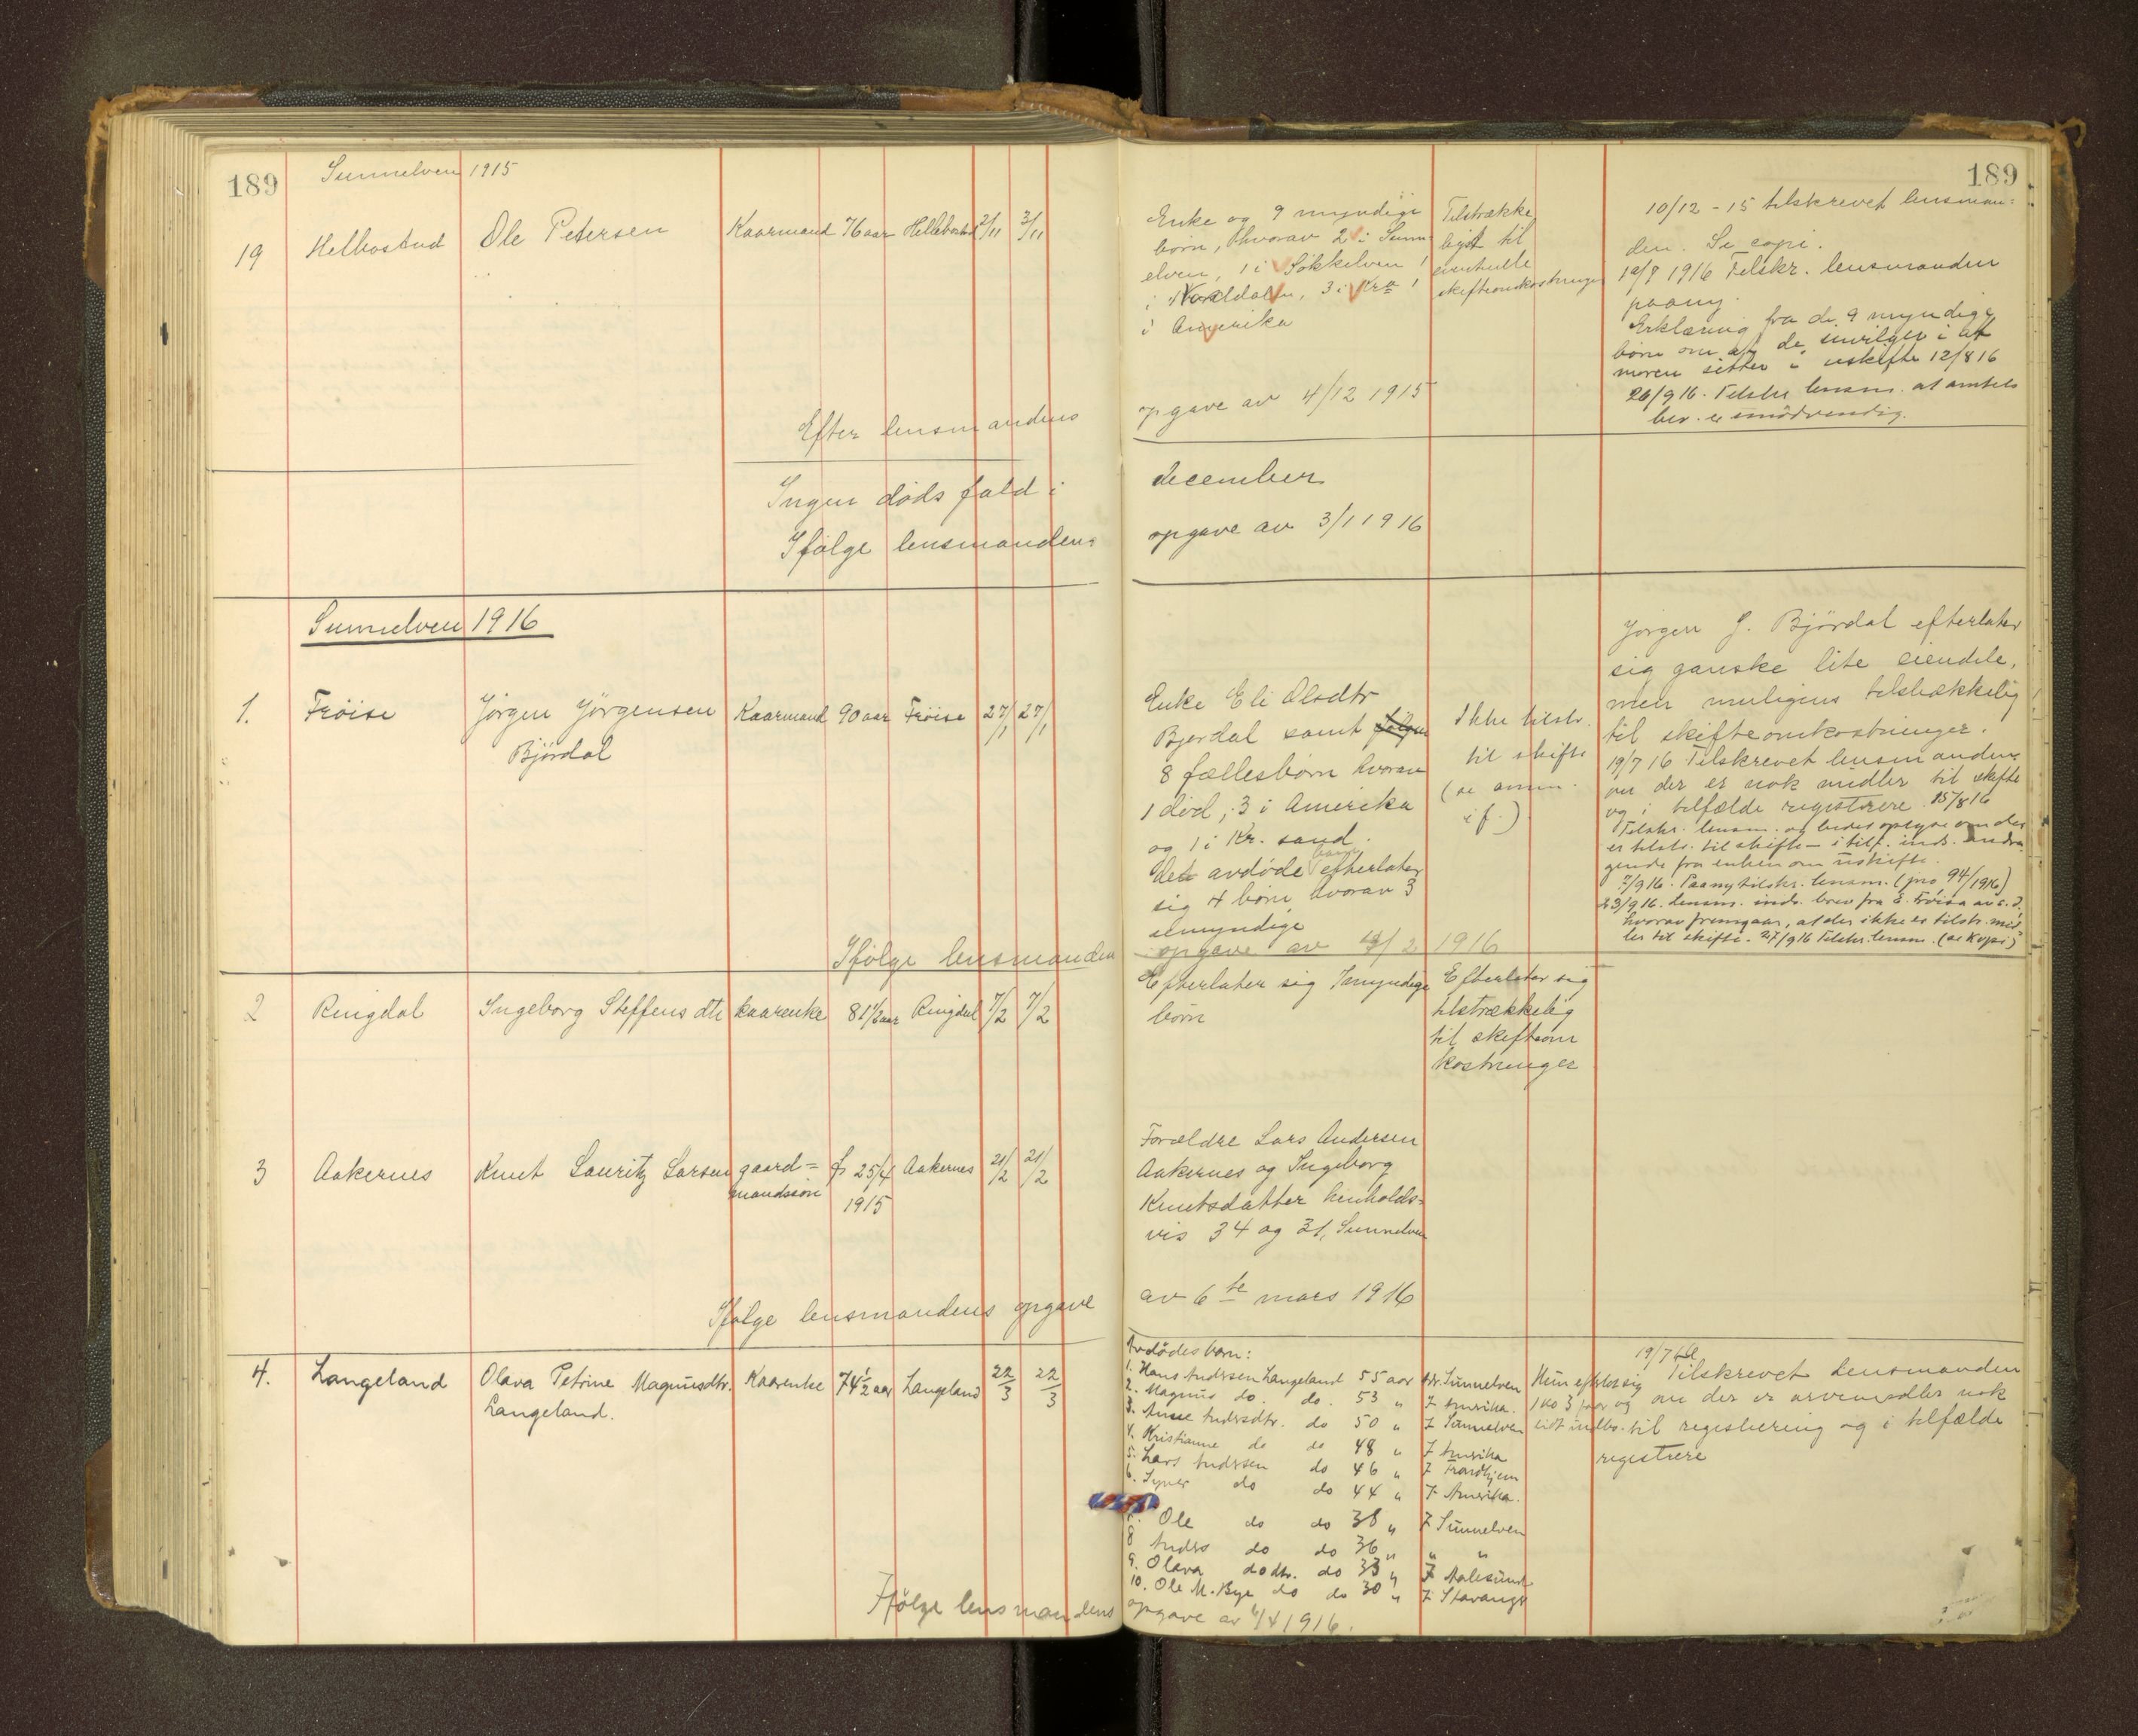 189
Sunnelven 1915
19
Hellbostad
Ole Petersen
Kaarmand
76 aar
Hellebostad
2/11
3/11
Efter lensmandens
Ingen dødsfald i
Ifølge lensmandens
Sunnelven 1916
1.
Frøise
Jørgen Jørgensen
Bjørdal
Kaarmand
90 aar
Frøise
27/1
27/1
Ifølge lensmanden
2
Ringdal
Ingeborg Steffensdtr
kaarenke
81 1/2 aar
Ringdal
7/2
7/2
3
Aakernes
Knut Lauritz Larsen
gaard=
mandssøn
f. 25/4
1915
Aakernes
21/2
21/2
Ifølge lensmandens opgave
4.
Langeland
Olava Petrine Magnusdtr.
Langeland.
Kaarenke
74 1/2 aar
Langeland
22/3
22/3
Ifølge lensmandens
189
Enke og 9 myndige
børn, hvorav 2 i Sunn
elven, 1 i Søkkelven 1
i Norddalen, 3 i Kra 1
i Amerika
opgave av 4/12 1915
Tilstrække
ligt til
eventuelle
skifteomkostninger
10/12 - 15 tilskrevet lensman=
den. Se copi.
12/7 1916 Tilskr. lensmanden
paany.
Erklæring fra de 9 myndige
børn om at de inviliger i at
moren sitter i uskifte 12/8 16
26/9 16. Tilskr. lensm. at amtets
bev. er unødvendig.
december
opgave av 3/1 1916
Enke Eli Olsdtr
Bjørdal samt
8 fællesbørn hvorav
1 død, 3 i Amerika
og 1 i Kr. sand.
Det avdøde barn efterlater
sig 4 børn hvorav 3
umyndige
opgave av 2 1916
Ikke tilstr.
til skifte
(se anm.
if.)
Jørgen J. Bjørdal efterlater
sig ganske lite eiendele,
men muligens tilstrækkelig
til skifteomkostninger.
19/7 16 Tilskrevet lensmanden
om der er nok midler til skifte
og i tilfælde registrere. 15/8 16
Tilskr. lensm. og bedes oplyse om der
er tilstr. til skifte - i tilf. inds. andra
gende fra enken om uskifte.
7/9 16. Paany tilskr. lensm. (jno 94/1916)
23/9 16. Lensm. inds. brev fra E. Frøisa av s. d.
hvorav fremgaar, at der ikke er tilstr. mid
ler til skifte. 27/9 16 Tilskr. lensm. (se Kopi)
Efterlater sig 7 myndige
børn
Efterlater sig
tilstrækkelig
til skifteom
kostninger
Forældre Lars Andersen
Aakernes og Ingeborg
Knutsdatter henholds=
vis 34 og 31, Sunnelven
av 6te mars 1916
Avdødes barn:
1. Hans Andersen Langeland 55 aar Adr. Sunnelven
2. Magnus do. do. 53 " I Amerika.
3. Anne Andrsdtr. do 50 " I Sunnelven
4. Kristianne do do 48 " I Amerika
5. Lars Andrsen do 46 " I Trondhjem
6. Syver do do 44 " I Amerika.
Ole do do 38 " I Sunnelven
8 Andrs do do 36 " " "
9. Olava do dtr. do 33 " I Aalesund
10. Ole M. Bye do do 30 " I Stavanger
opgave av 4/4 1916.
Hun efterlot sig
1 ko 3 faar og
lidt indbo.
19/7 16
Tilskrevet Lensmanden
om der er arvemidler nok
til registrering og i tilfælde
registrere